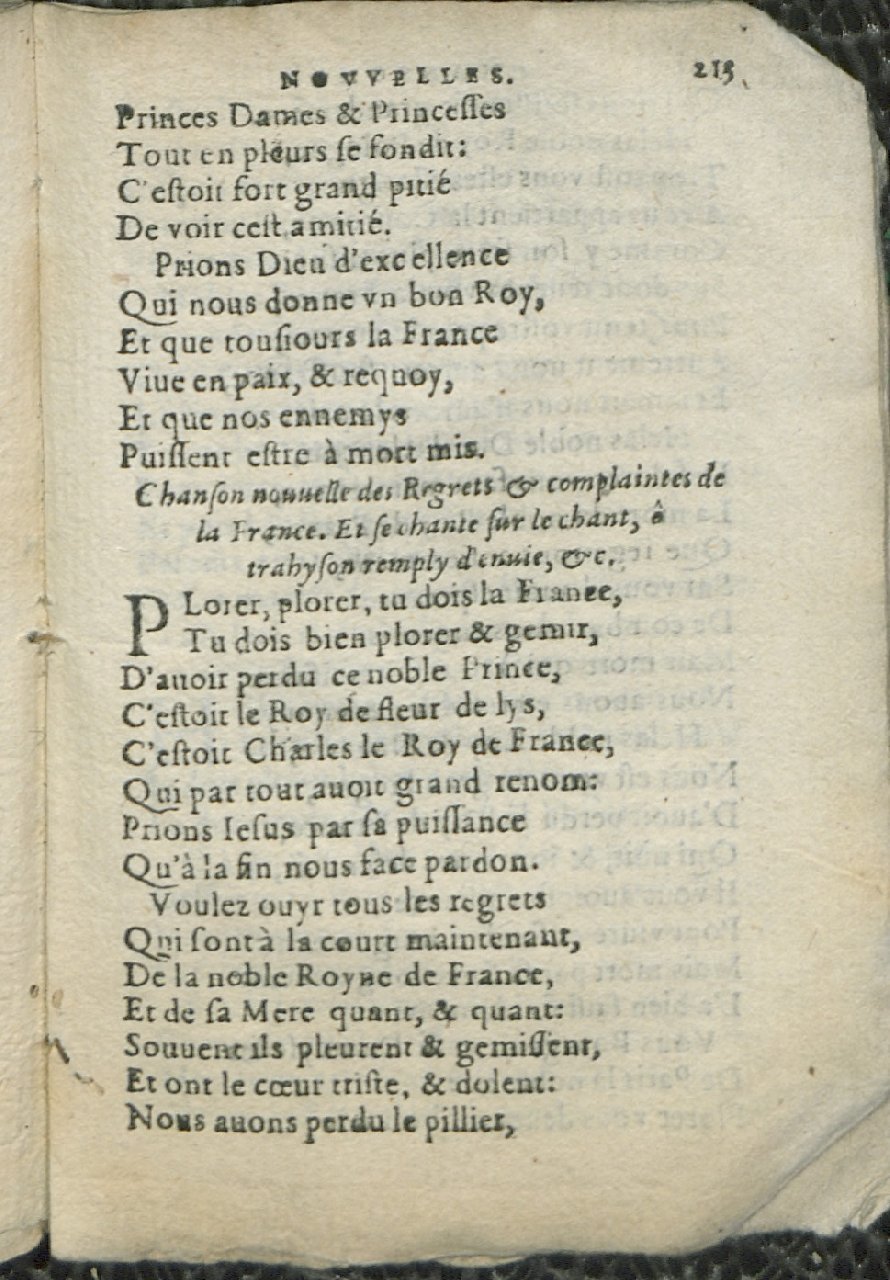 NOVVELLES. 215
Princes Dames & Princeſſes
Tout en pleurs ſe fondit:
C'eſtoit fort grand pitié
De voir ceſt amitié.
Prions Dieu d'excellence
Qui nous donne vn bon Roy,
Et que touſiours la France
Viue en paix, & requoy,
Et que nos ennemys
Puiſſent eſtre à mort mis.
Chanſon nouuelle des Regrets & complaintes de
la France. Et ſe chante ſur le chant, ô
trahyſon remply d'enuie, &c.
PLorer, plorer, tu dois la France,
Tu dois bien plorer & gemir,
D'auoir perdu ce noble Prince,
C'eſtoit le Roy de fleur de lys,
C'eſtoit Charles le Roy de France,
Qui par tout auoit grand renom:
Prions Ieſus par ſa puiſſance
Qu'à la fin nous face pardon.
Voulez ouyr tous les regrets
Qui ſont à la court maintenant,
De la noble Royne de France,
Et de ſa Mere quant, & quant:
Souuent ils pleurent & gemiſſent,
Et ont le cœur triſte, & dolent:
Nous auons perdu le pillier,